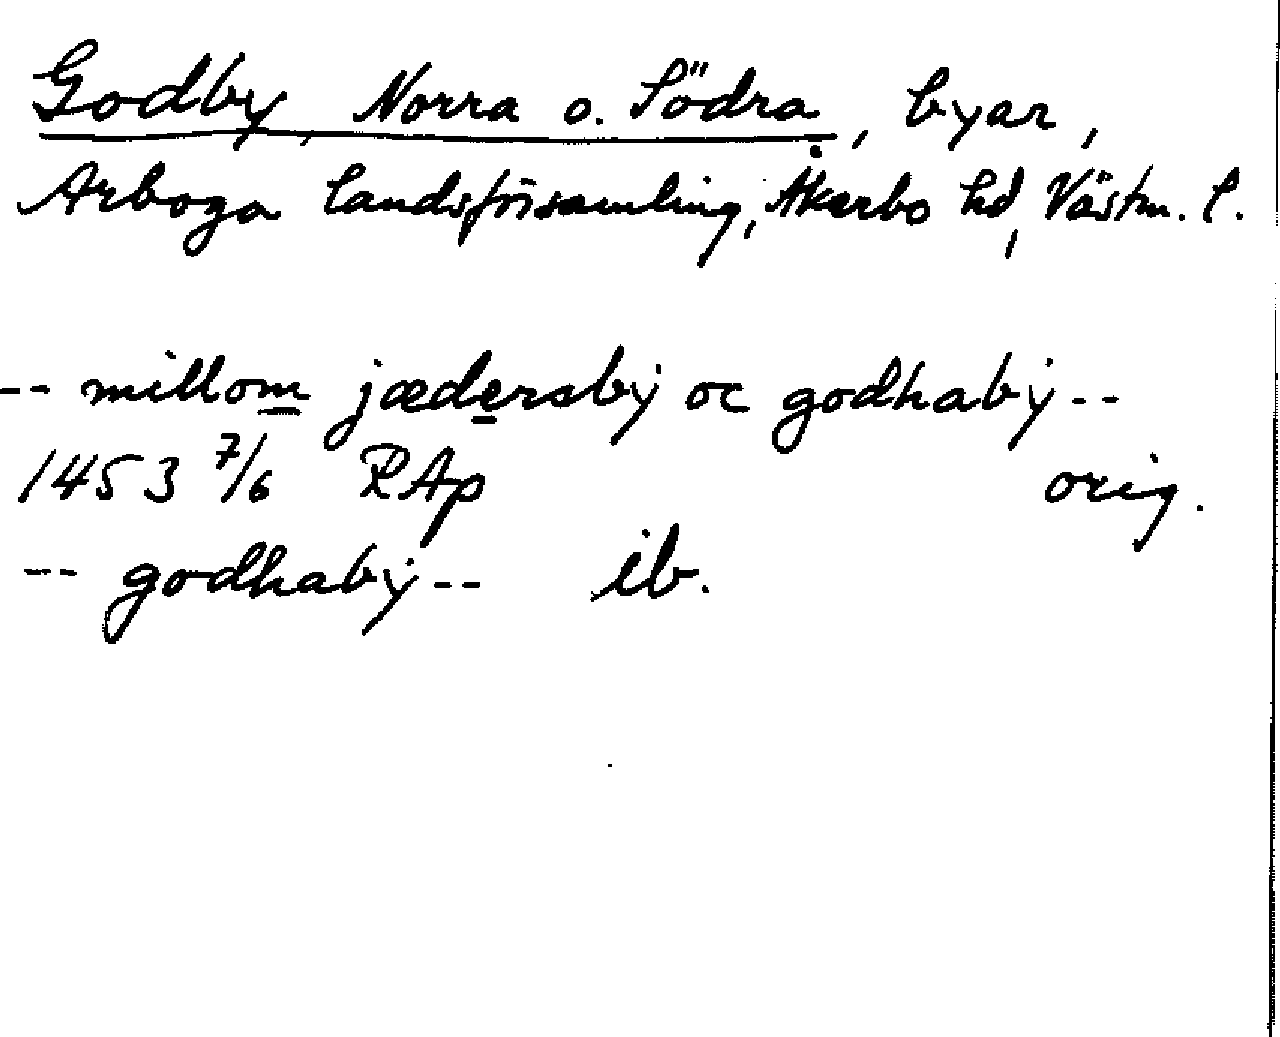 Godby, Norra o. Södra, byar,
Arboga landsförsamling, Åkerbo hd, Västm. l.
-- millom jædersbẏ oc godhabẏ --
1453 7/6 RAp orig.
-- godhabẏ -- ib.